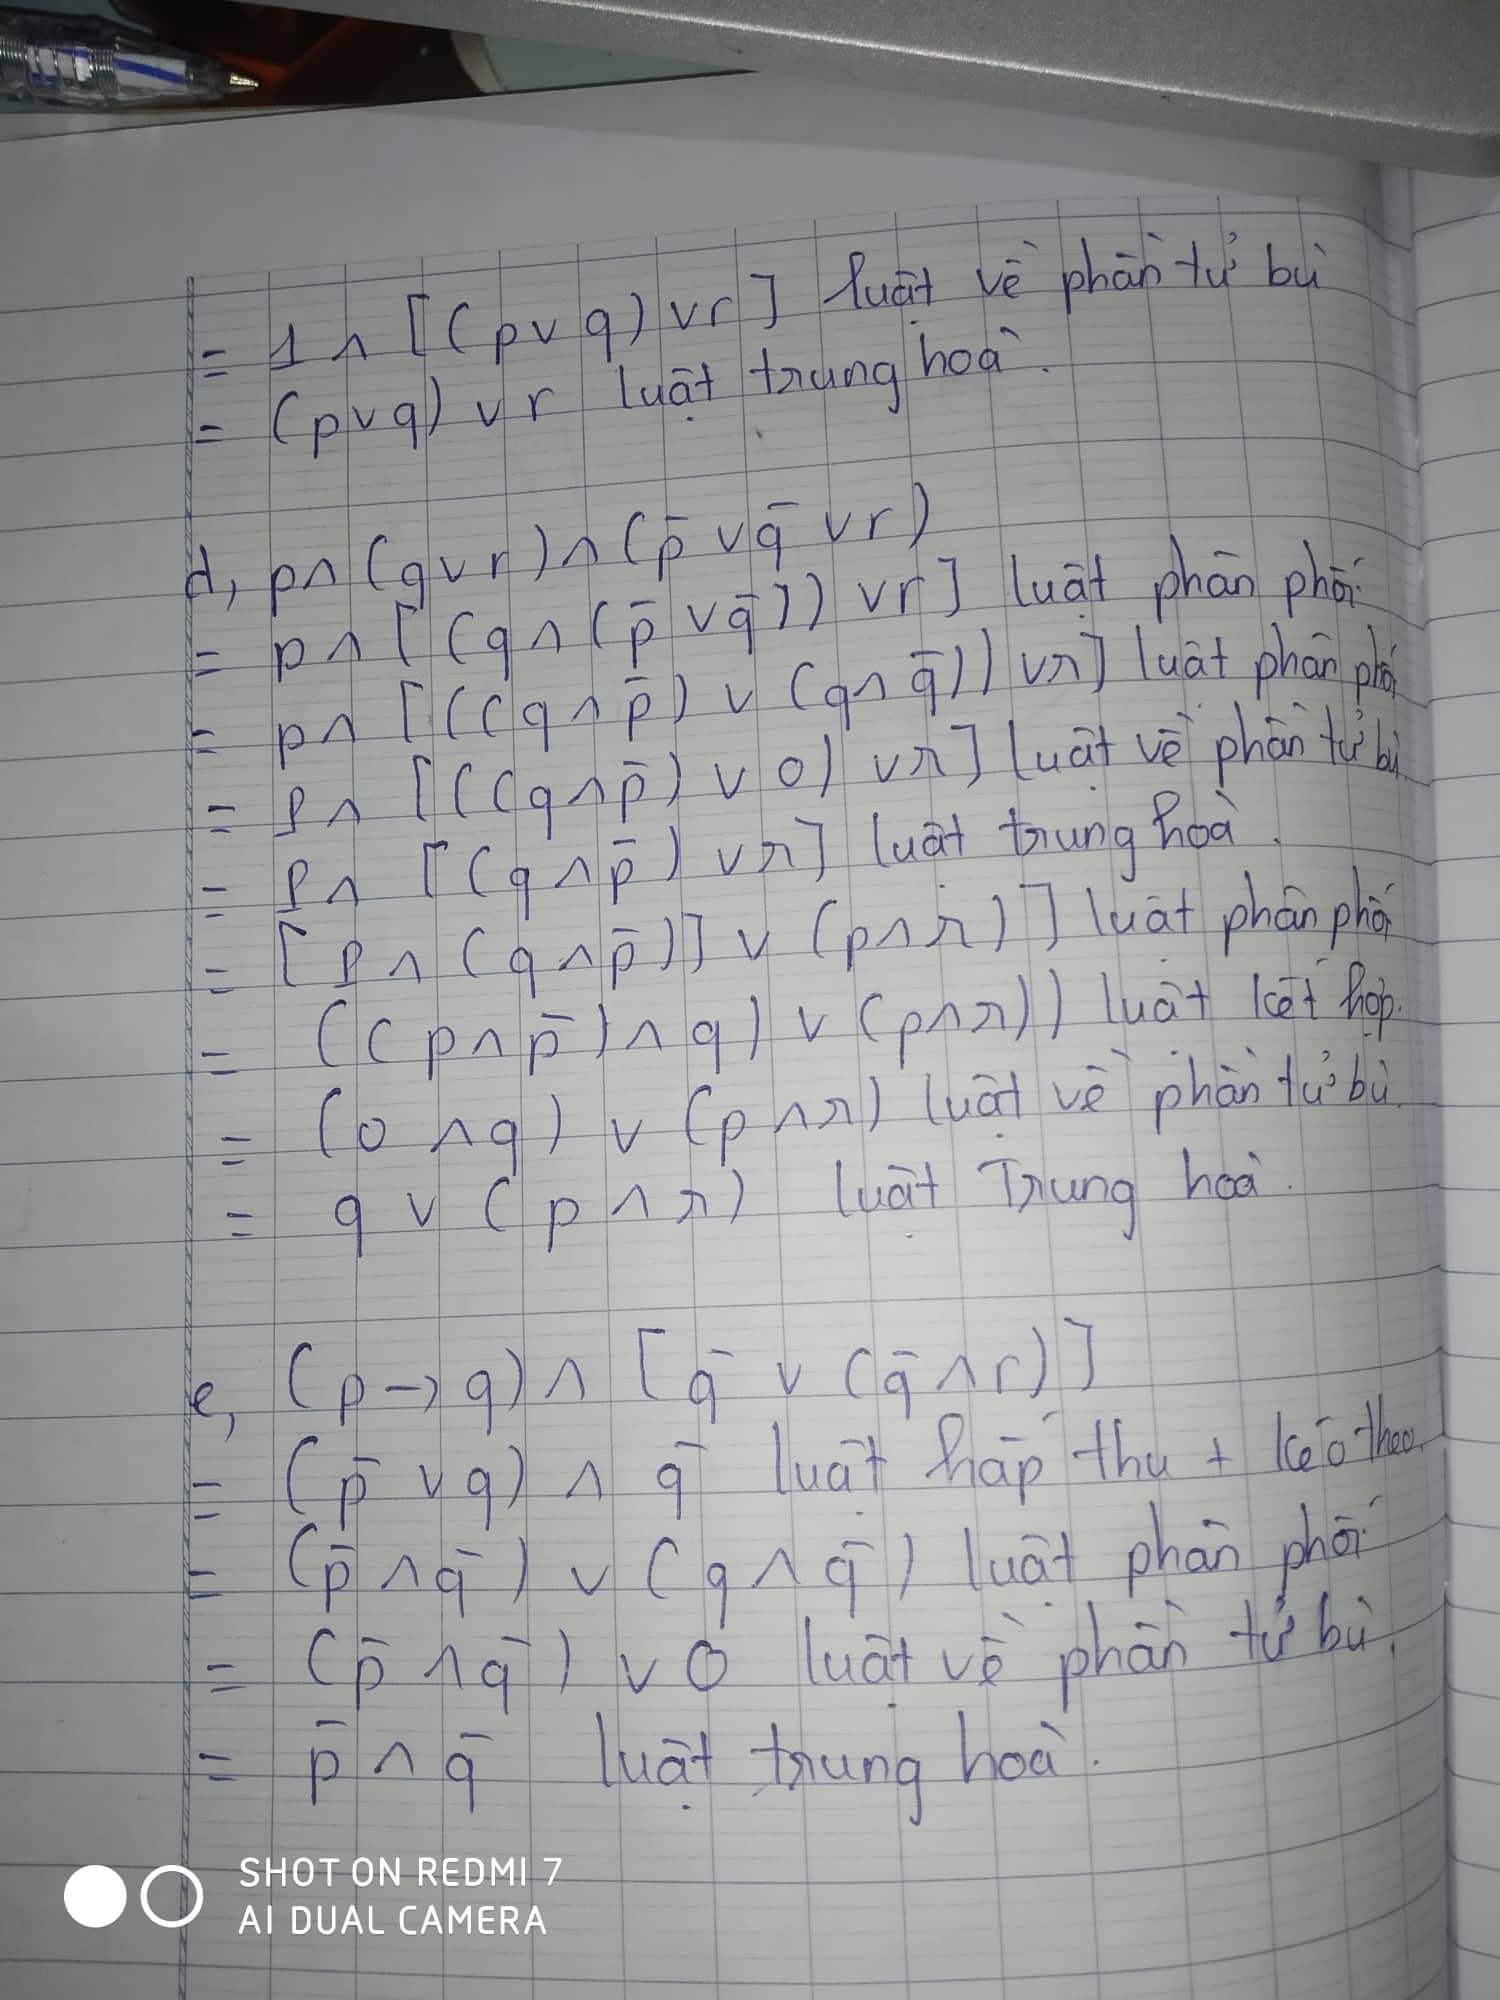 = 1 ∧ [(p∨q)∨r] luật về phần tử bù
= (p∨q)∨r luật trung hoà.
d, p∧(q∨r)∧(p̄∨q̄∨r)
= p∧[(q∧(p̄∨q̄))∨r] luật phân phối
= p∧[((q∧p̄)∨(q∧q̄))∨r] luật phân phối
= p∧[((q∧p̄)∨0)∨r] luật về phần tử bù
= p∧[(q∧p̄)∨r] luật trung hoà.
= [p∧(q∧p̄)]∨(p∧r)] luật phân phối
= ((p∧p̄)∧q)∨(p∧r)) luật kết hợp.
= (0∧q)∨(p∧r) luật về phần tử bù
= q∨(p∧r) luật Trung hoà.
e, (p→q)∧[q̄∨(q̄∧r)]
= (p̄∨q)∧q̄ luật hấp thu + kéo theo.
= (p̄∧q̄)∨(q∧q̄) luật phân phối
= (p̄∧q̄)∨0 luật về phần tử bù,
= p̄∧q̄ luật trung hoà.
SHOT ON REDMI 7
AI DUAL CAMERA